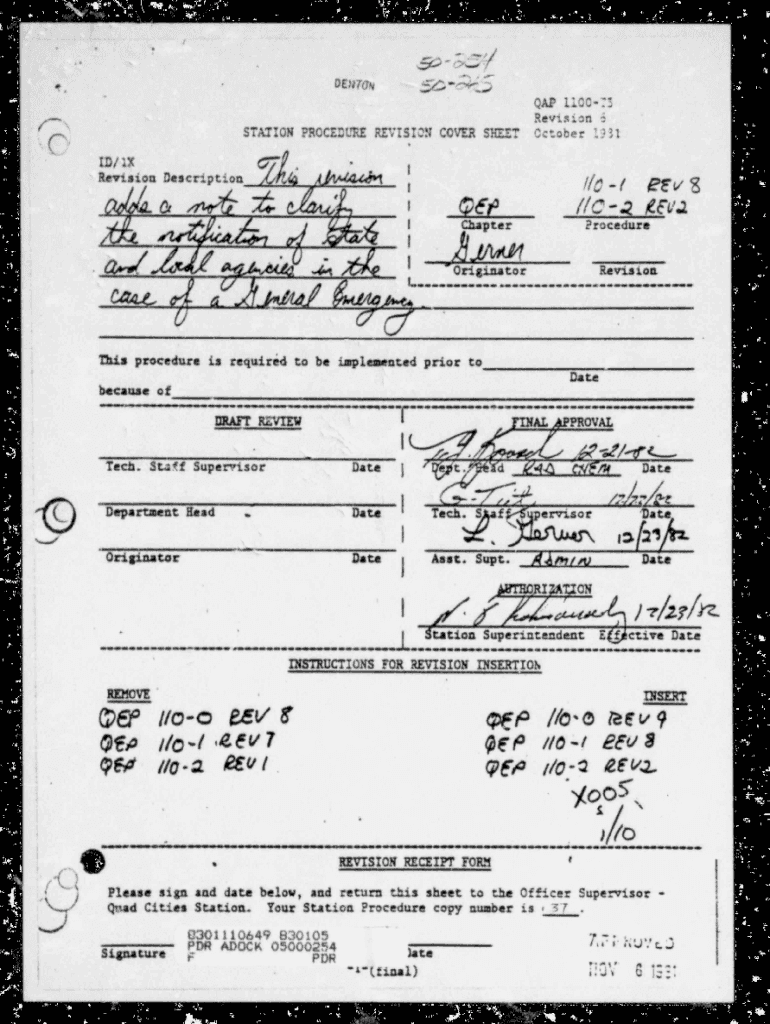 50-254
DENTON 50-265
QAP 1100-T3
Revision 6
STATION PROCEDURE REVISION COVER SHEET October 1981
ID/1X
Revision Description This revision
adds a note to clarify
the notification of State
and local agencies in the
case of a General Emergency.
110-1 REV 8
QEP 110-2 REV2
Chapter Procedure
Gerner
Originator Revision
This procedure is required to be implemented prior to
Date
because of
DRAFT REVIEW FINAL APPROVAL
12-21-82
Tech. Staff Supervisor Date Dept. Head RAD CHEM Date
12/22/82
Department Head Date Tech. Staff Supervisor Date
L. Gerner 12/23/82
Originator Date Asst. Supt. ADMIN Date
AUTHORIZATION
12/23/82
Station Superintendent Effective Date
INSTRUCTIONS FOR REVISION INSERTION
REMOVE INSERT
QEP 110-0 REV 8 QEP 110-0 REV 9
QEP 110-1 REV 7 QEP 110-1 REV 8
QEP 110-2 REV 1 QEP 110-2 REV2
X005
1/10
REVISION RECEIPT FORM
Please sign and date below, and return this sheet to the Officer Supervisor -
Quad Cities Station. Your Station Procedure copy number is 37 .
8301110649 830105
PDR ADOCK 05000254
F PDR
Signature Date
-1-(final)
APPROVED
NOV 6 1981